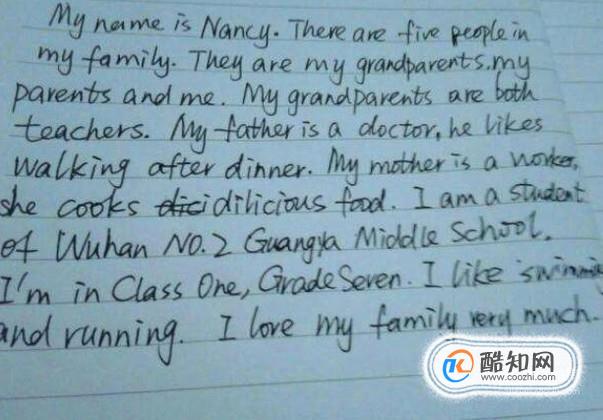 My name is Nancy. There are five people in
my family. They are my grandparents.my
parents and me. My grandparents are both
teachers. My father is a doctor, he likes
walking after dinner. My mother is a worker,
she cooks dici dilicious food. I am a student
of Wuhan NO.2 Guangya Middle School.
I'm in Class One, Grade Seven. I like swimming
and running. I love my family very much.
酷知网
www.coozhi.com